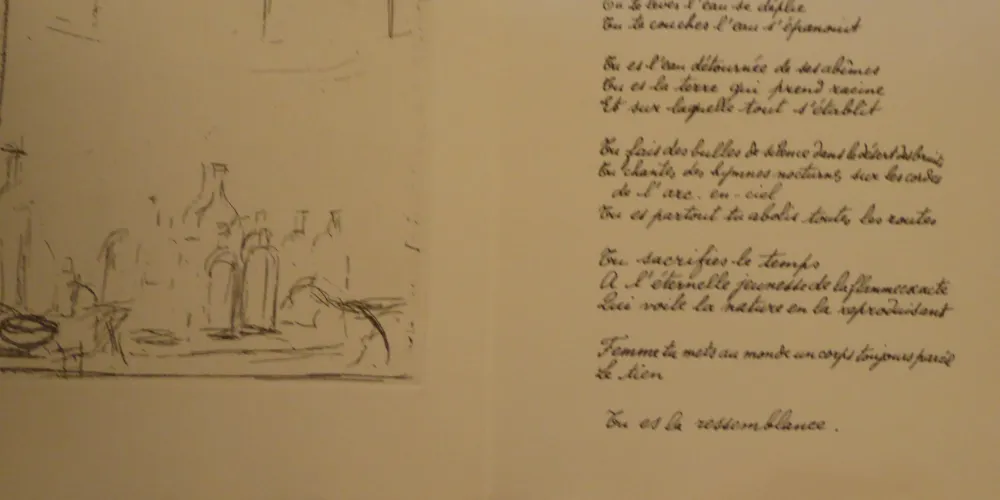 Tu te lèves l'eau se déplie
Tu te couches l'eau s'épanouit
Tu es l'eau détournée de ses abîmes
Tu es la terre qui prend racine
Et sur laquelle tout s'établit
Tu fais des bulles de silence dans le désert des bruits
Tu chantes des hymnes nocturnes sur les cordes
de l'arc-en-ciel
Tu es partout tu abolis toutes les routes
Tu sacrifies le temps
A l'éternelle jeunesse de la flamme exacte
Qui voile la nature en la reproduisant
Femme tu mets au monde un corps toujours pareil
Le tien
Tu es la ressemblance.